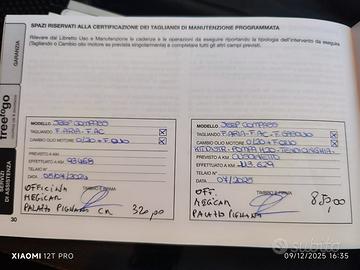 SPAZI RISERVATI ALLA CERTIFICAZIONE DEI TAGLIANDI DI MANUTENZIONE PROGRAMMATA
Rilevare dal Libretto Uso e Manutenzione le cadenze e le operazioni da eseguire riportando la tipologia dell'intervento da eseguire
(Tagliando o Cambio olio motore se prevista singolarmente) e completare tutti gli altri campi previsti.
GARANZIA
freetogo
SERVIZI
DI ASSISTENZA
MODELLO JEEP COMPASS
TAGLIANDO F. ARIA - F. AC
CAMBIO OLIO MOTORE 0/20 + F. OLIO
PREVISTO A KM
EFFETTUATO A KM
TELAIO N°
DATA
TIMBRO E FIRMA
OFFICINA
MEGICAR
PALAZZO PIGNANO CR 320,00
MODELLO JEEP COMPASS
TAGLIANDO F. ARIA - F. AC - F. GASOLIO
CAMBIO OLIO MOTORE 0/20 + F. OLIO
PREVISTO A KM
EFFETTUATO A KM 113.629
TELAIO N°
DATA 07/2025
TIMBRO E FIRMA
OFF.
MEGICAR
PALAZZO PIGNANO
850,00
30
subito
XIAOMI 12T PRO
09/12/2025 16:35